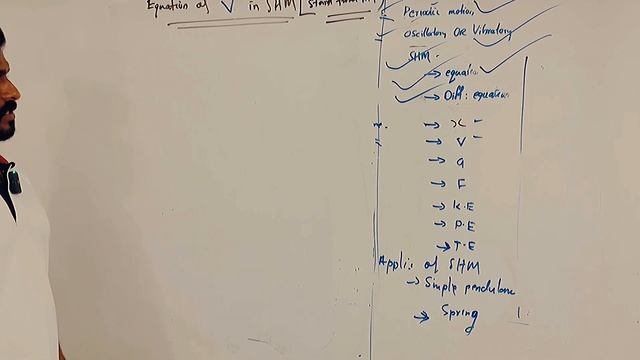 Equation of V in SHM [start from
Periodic motion
Oscillatory OR Vibratory
SHM.
→ equation
→ Diff: equation
→ x -
→ V -
→ a
→ F
→ K.E
→ P.E
→ T.E
Applic of SHM
→ Simple pendulum
→ Spring